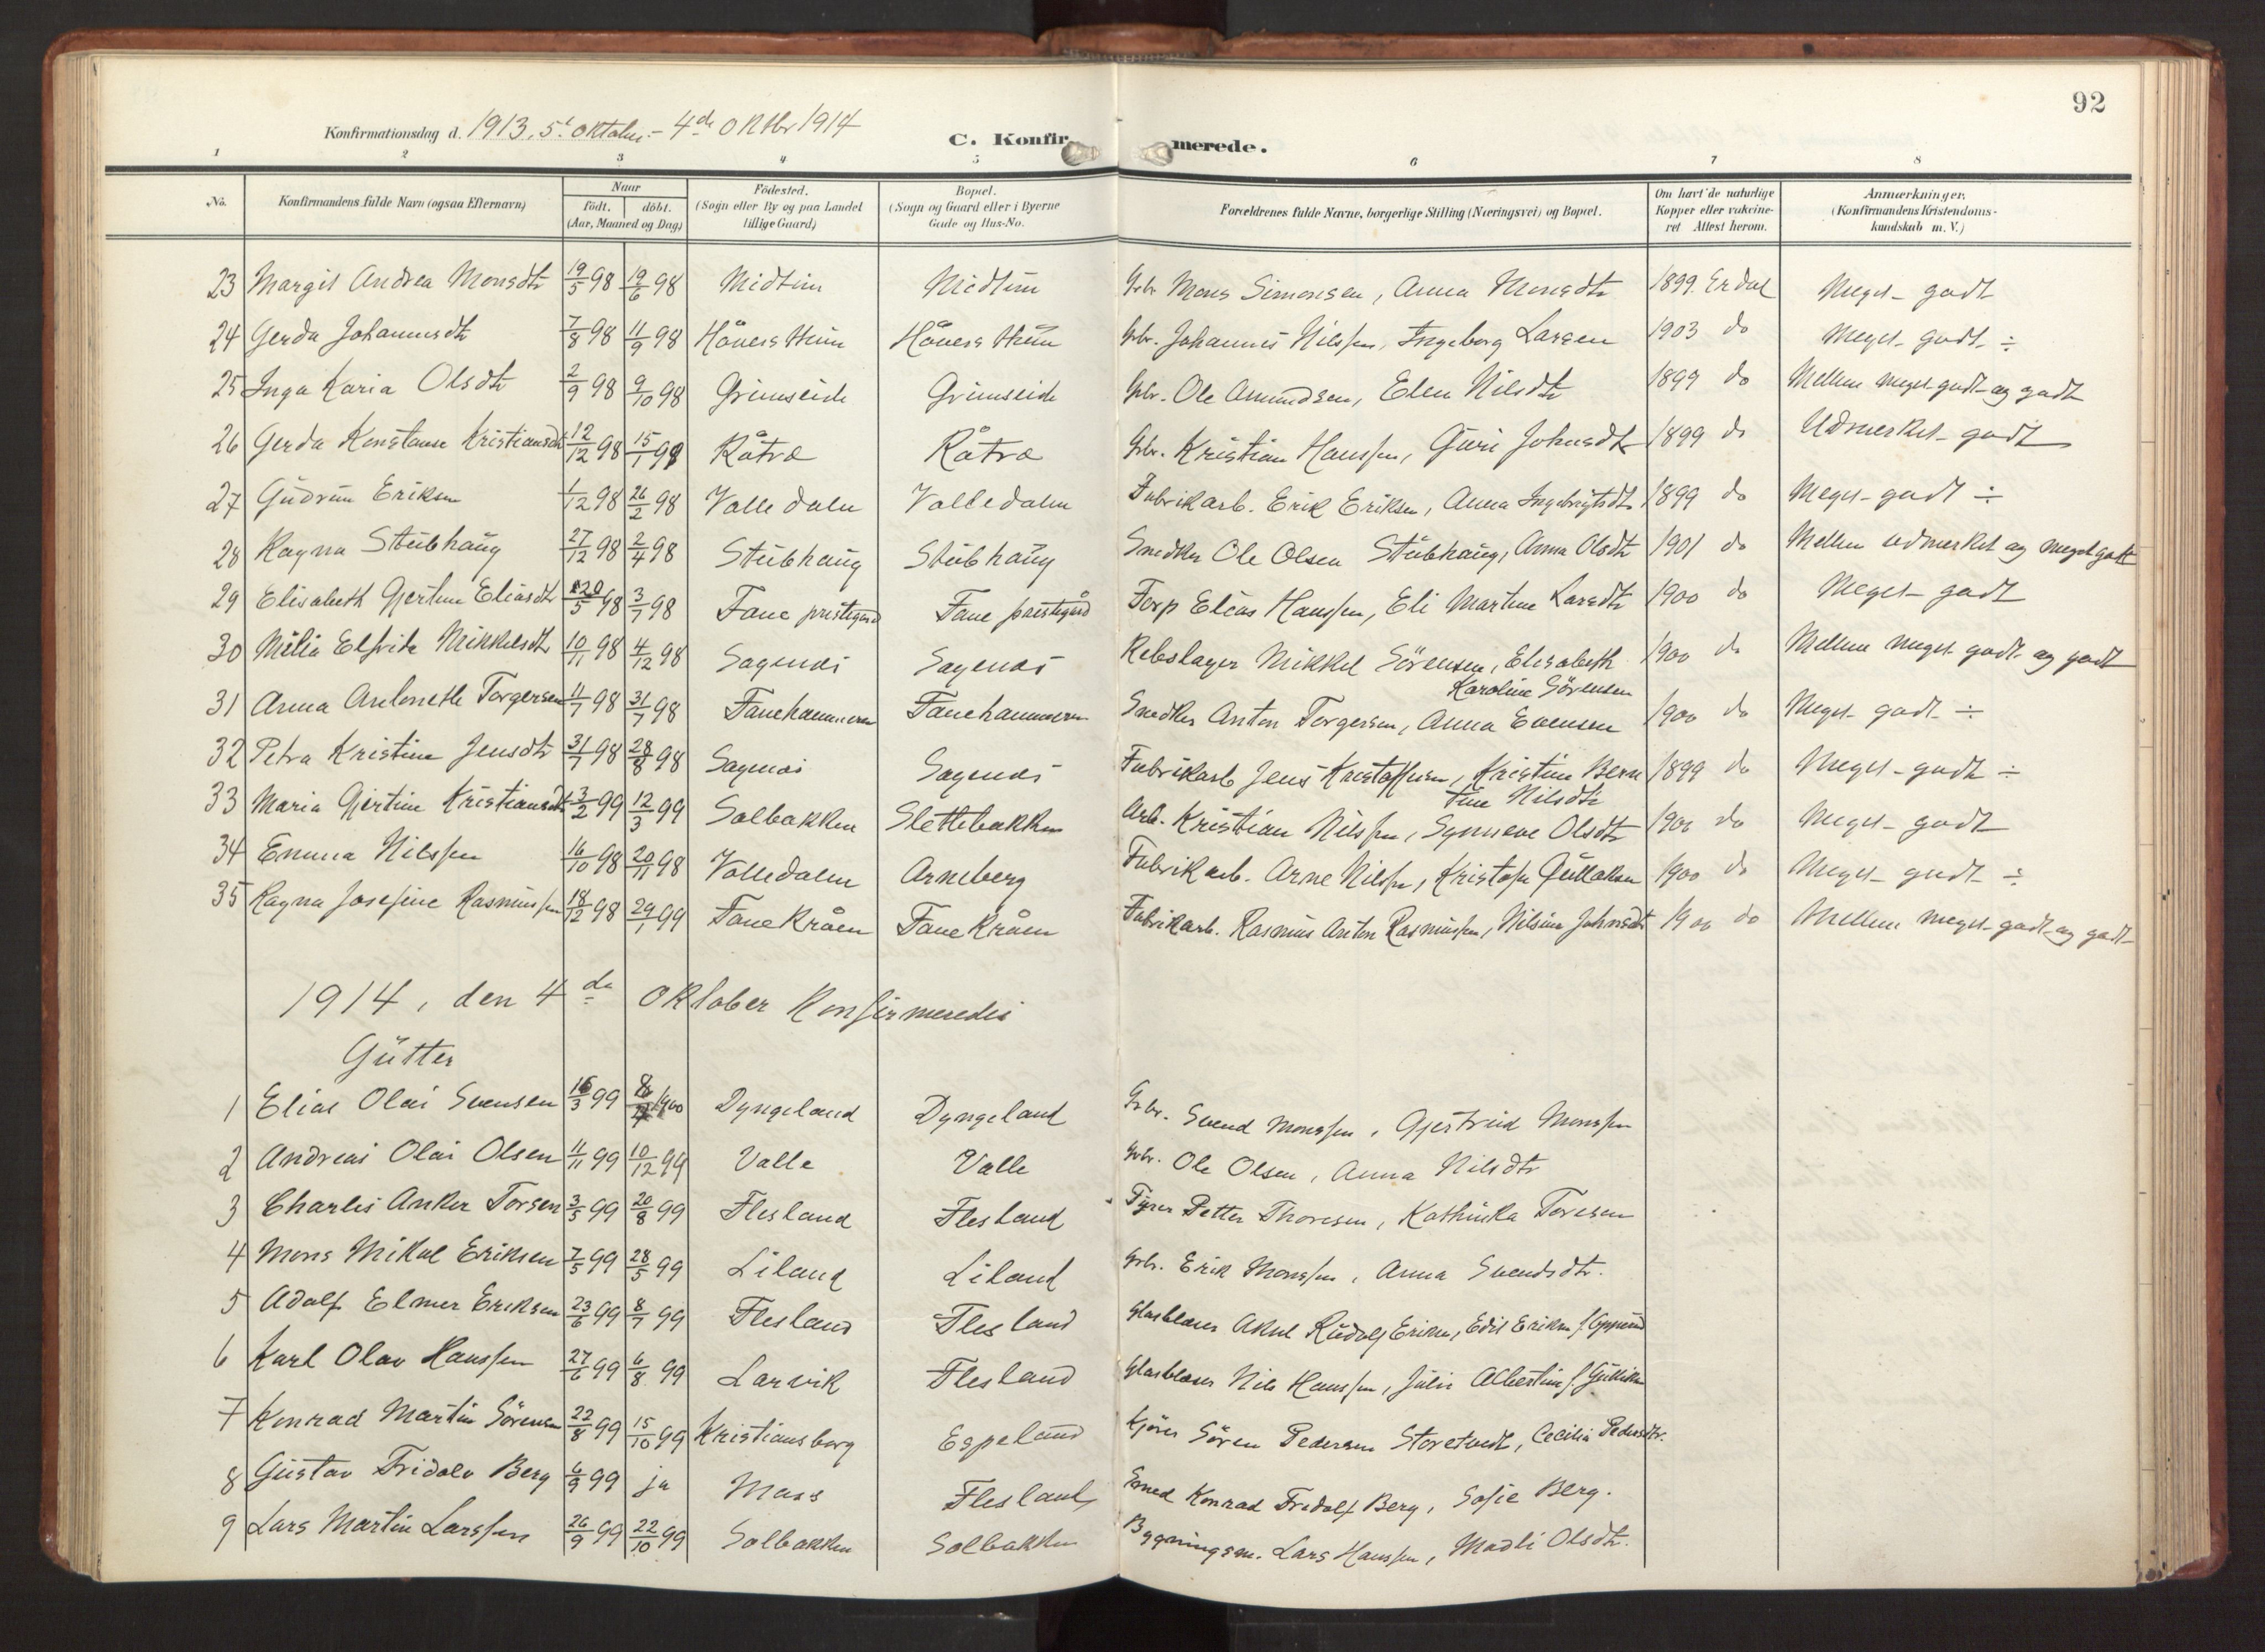 92
Konfirmationsdag d. 1913, 5te oktober - 4de oktbr 1914
C. Konfirmerede.
1 2 3 4 5 6 7 8
No. Konfirmandens fulde Navn (ogsaa Efternavn) Naar født. døbt. (Aar, Maaned og Dag) Födested. (Sogn eller By og paa Landet tillige Gaard) Bopæl. (Sogn og Gaard eller i Byerne Gade og Hus-No. Forældrenes fulde Navne, borgerlige Stilling (Næringsvei) og Bopæl. Om havt de naturlige Kopper eller vakcineret Attest herom. Anmærkninger, (Konfirmandens Kristendomskundskab m. V.)
23 Margit Andrea Monsdtr 19/5 98 19/6 98 Midtun Midtun Gbr. Mons Simonsen, Anna Monsdtr 1899 Erdal Meget godt
24 Gerda Johannesdtr 7/8 98 11/9 98 Håvers tun Håvers tun Gbr. Johannes Nilssen, Ingeborg Larsen 1903 do Meget godt ÷
25 Inga Karia Olsdtr 2/9 98 9/10 98 Grimseide Grimseide Gbr. Ole Amundsen, Elen Nilsdtr 1899 do Mellem meget godt og godt
26 Gerda Konstanse Kristiansdtr 12/12 98 15/1 99 Råtræ Råtræ Gbr. Kristian Hanssen, Guri Johnsdtr 1899 do Udmerket godt
27 Gudrun Eriksen 1/12 98 26/2 98 Valle dalen Valledalen Fabrikarb. Erik Eriksen, Anna Ingebrigtsdtr 1899 do Meget godt ÷
28 Ragna Stubhaug 27/12 98 2/4 98 Stubhaug Stubhaug Snedker Ole Olsen Stubhaug, Anna Olsdtr 1901 do Mellem udmerket og meget godt
29 Elisabeth Gjertine Eliasdtr 20/5 98 3/7 98 Fane prestegård Fane prestegård Forp Elias Hanssen, Eli Martine Larsdtr 1900 do Meget godt
30 Milia Elfrite Mikkelsdtr 10/11 98 4/12 98 Sagenes Sagenes Rebslager Mikkel Sørensen, Elisabeth 1900 do Mellem meget godt og godt
Karoline Sørensen
31 Anna Antonette Torgersen 11/7 98 31/7 98 Fanehammeren Fanehammeren Snedker Anton Torgersen, Anna Evensen 1900 do Meget godt ÷
32 Petra Kristine Jensdtr 31/7 98 28/8 98 Sagenes Sagenes Fabrikarb Jens Kristoffersen, Kristine Bern 1899 do Meget godt ÷
tine Nilsdtr
33 Maria Gjertine Kristiansdtr 3/2 99 12/3 99 Solbakken Slettebakken Arb. Kristian Nilssen, Synneve Olsdtr 1900 do Meget godt
34 Emma Nilssen 16/10 98 20/11 98 Valledalen Arneberg Fabrikarb. Arne Nilssen, Gullaksen 1900 do Meget godt ÷
35 Ragna Josefine Rasmussen 18/12 98 29/1 99 Fane Kråen Fane Kråen Fabrikarb. Rasmus Anton Rasmussen, Nilsine Johnsdtr 1900 do Mellem meget godt og godt
1914, den 4de oktober Konfirmeredes
Gutter
1 Elias Olai Svensen 16/3 99 8/ 1900 Dyngeland Dyngeland Gbr. Svend Monssen, Gjertrud Monssen
2 Andreas Olai Olsen 11/11 99 10/12 99 Valle Valle Gbr. Ole Olsen, Anna Nilsdtr
3 Charles Anker Torsen 3/5 99 20/8 99 Flesland Flesland Petter Thoresen, Kathinka Toresen
4 Mons Mikal Eriksen 7/5 99 28/5 99 Liland Liland Gbr. Erik Monssen, Anna Svendsdtr.
5 Adolf Elmer Eriksen 23/6 99 8/7 99 Flesland Flesland Glasblæser Aksel Rudolf Eriksen, Edit Eriksen f.
6 Karl Olav Hanssen 27/6 99 6/8 99 Larvik Flesland Glasblæser Nils Hanssen, Julie Albertine f. Gulliksen
7 Konrad Martin Sørensen 22/8 99 15/10 99 Kristiansborg Espeland Kjører Søren Pedersen Storetvedt, Cecilia Pedersdtr.
8 Gustav Fridolv Berg 6/9 99 ja Moss Flesland Smed Konrad Fridolf Berg, Sofie Berg.
9 Lars Martin Larssen 26/9 99 22/10 99 Solbakken Solbakken Bygningsm. Lars Hanssen, Madli Olsdtr.